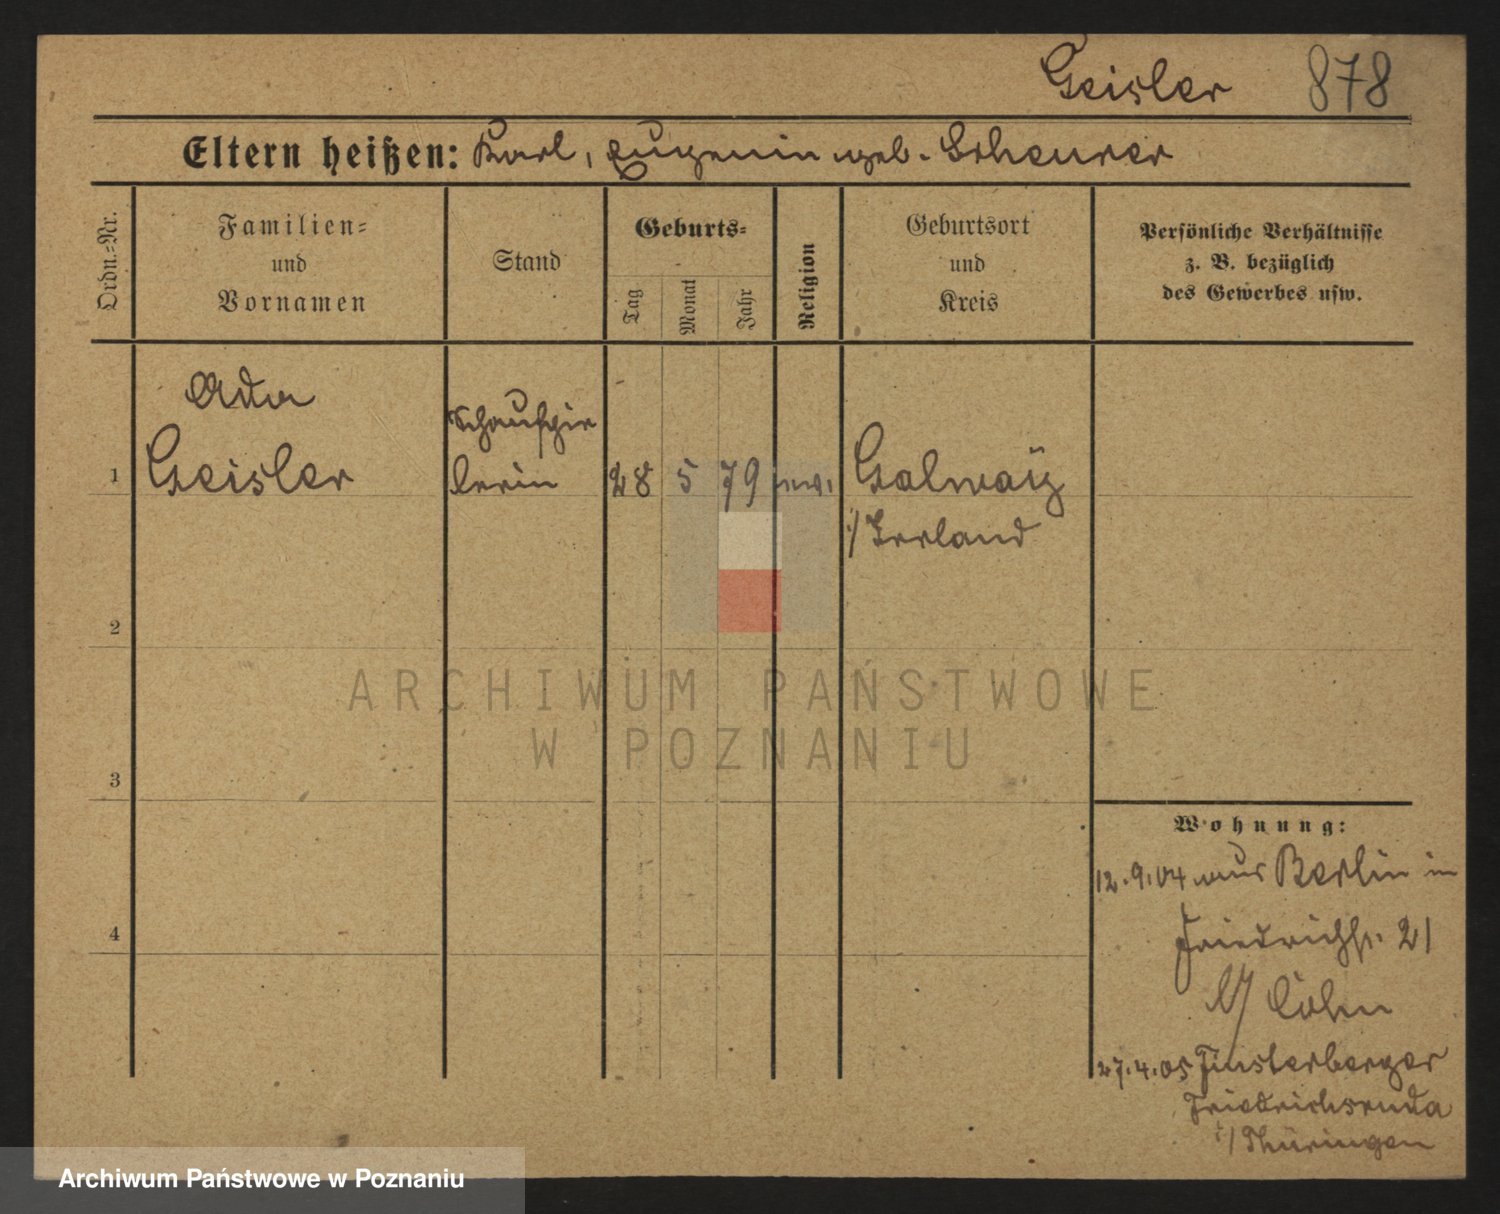 Geisler 878
Eltern heißen: Karl, Eugenin geb. Scheurer
Ordn.=Nr.
Familien=
und
Vornamen
Stand
Geburts=
Tag
Monat
Jahr
Religion
Geburtsort
und
Kreis
Persönliche Verhältnisse
z. B. bezüglich
des Gewerbes usw.
Ada
Geisler
Schauspie
lerin
1
28 5 79
Galway
i/ Irrland
2
3
4
ARCHIWUM PAŃSTWOWE
W POZNANIU
Wohnung:
12.9.04 aus Berlin in
Friedrichstr. 21
b/ Cohn
27.4.05 Finsterbergen
Friedrichsruda
i/ Thüringen
Archiwum Państwowe w Poznaniu